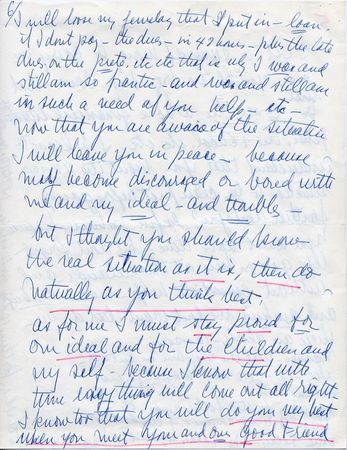 I will loose my jewelry that I put in - loan.
if I dont pay - the dues - in 48 hours - plus the late
dues, on the etc etc that is why I was and
still am so frantic - and was and still am
in such a need of you help - etc -
now that you are aware of the situation
I will leave you in peace - because
may become discouraged or bored with
me and my ideal - and troubles -
but I thought you should know
the real situation as it is, then do
natually as you think best,
as for me I must stay proud for
our ideal and for the children and
my self - because I know that with
time everything will come out all right
I know too that you will do you very best
when you meet you and our good friend